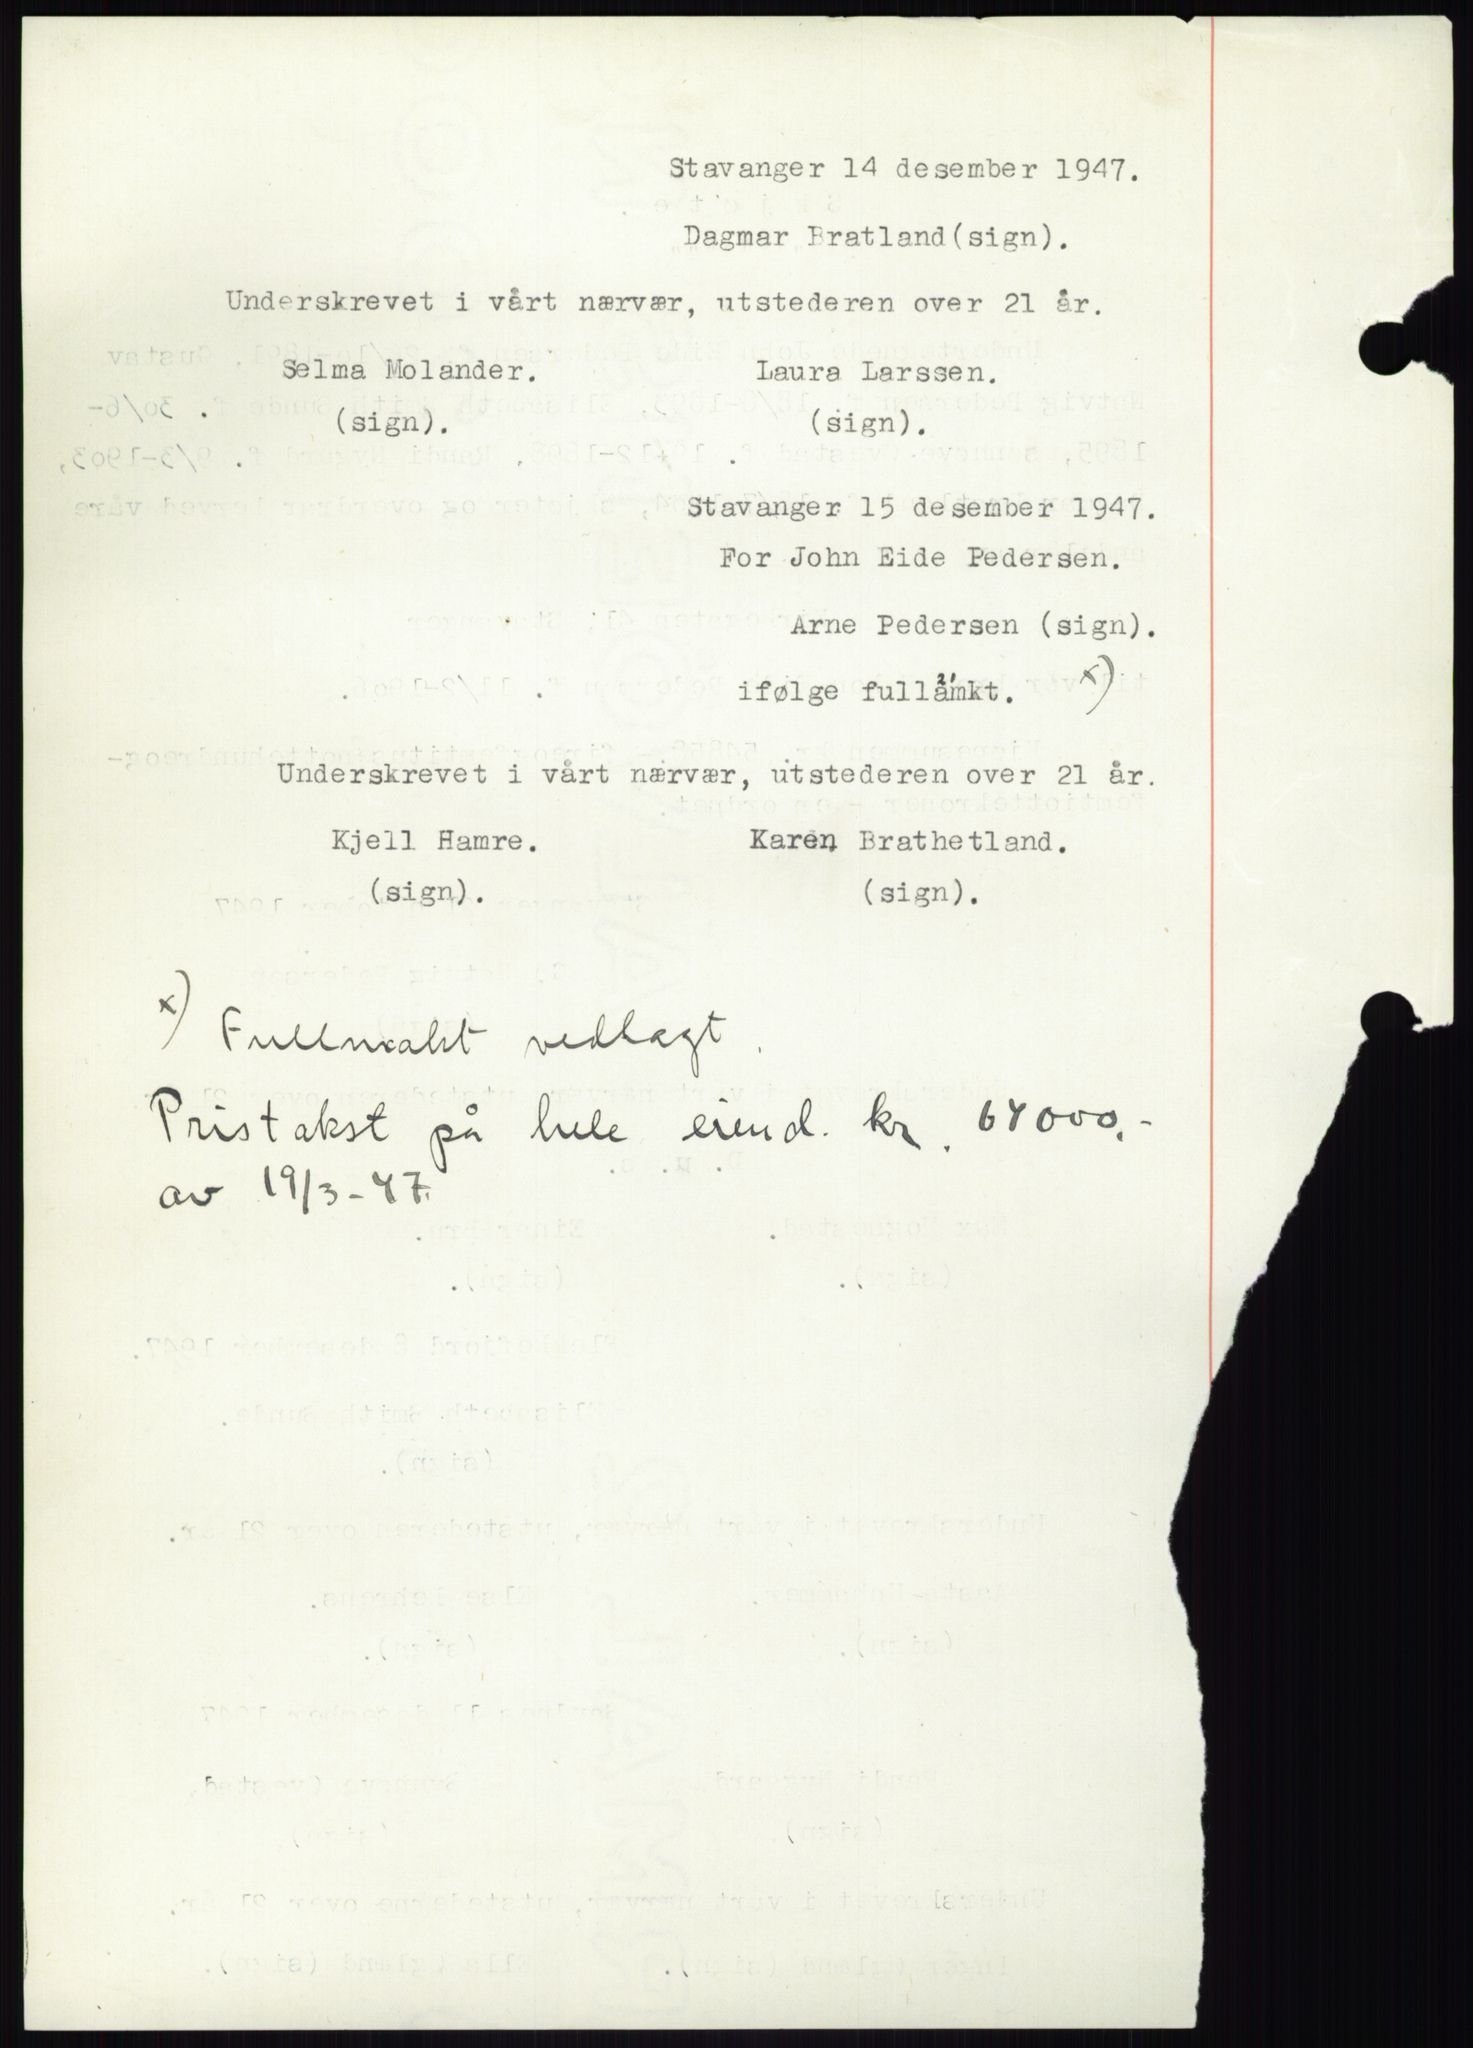 Stavanger 14 desember 1947.
Dagmar Bratland(sign).
Underskrevet i vårt nærvær, utstederen over 21 år.
Selma Molander. Laura Larssen.
(sign). (sign).
Stavanger 15 desember 1947.
For John Eide Pedersen.
Arne Pedersen (sign).
ifølge fullåmkt. x)
Underskrevet i vårt nærvær, utstederen over 21 år.
Kjell Hamre. Karen Brathetland.
(sign). (sign).
x) Fullmakt vedlagt.
Pristakst på hele eiend. kr. 64000,-
av 19/3-47.